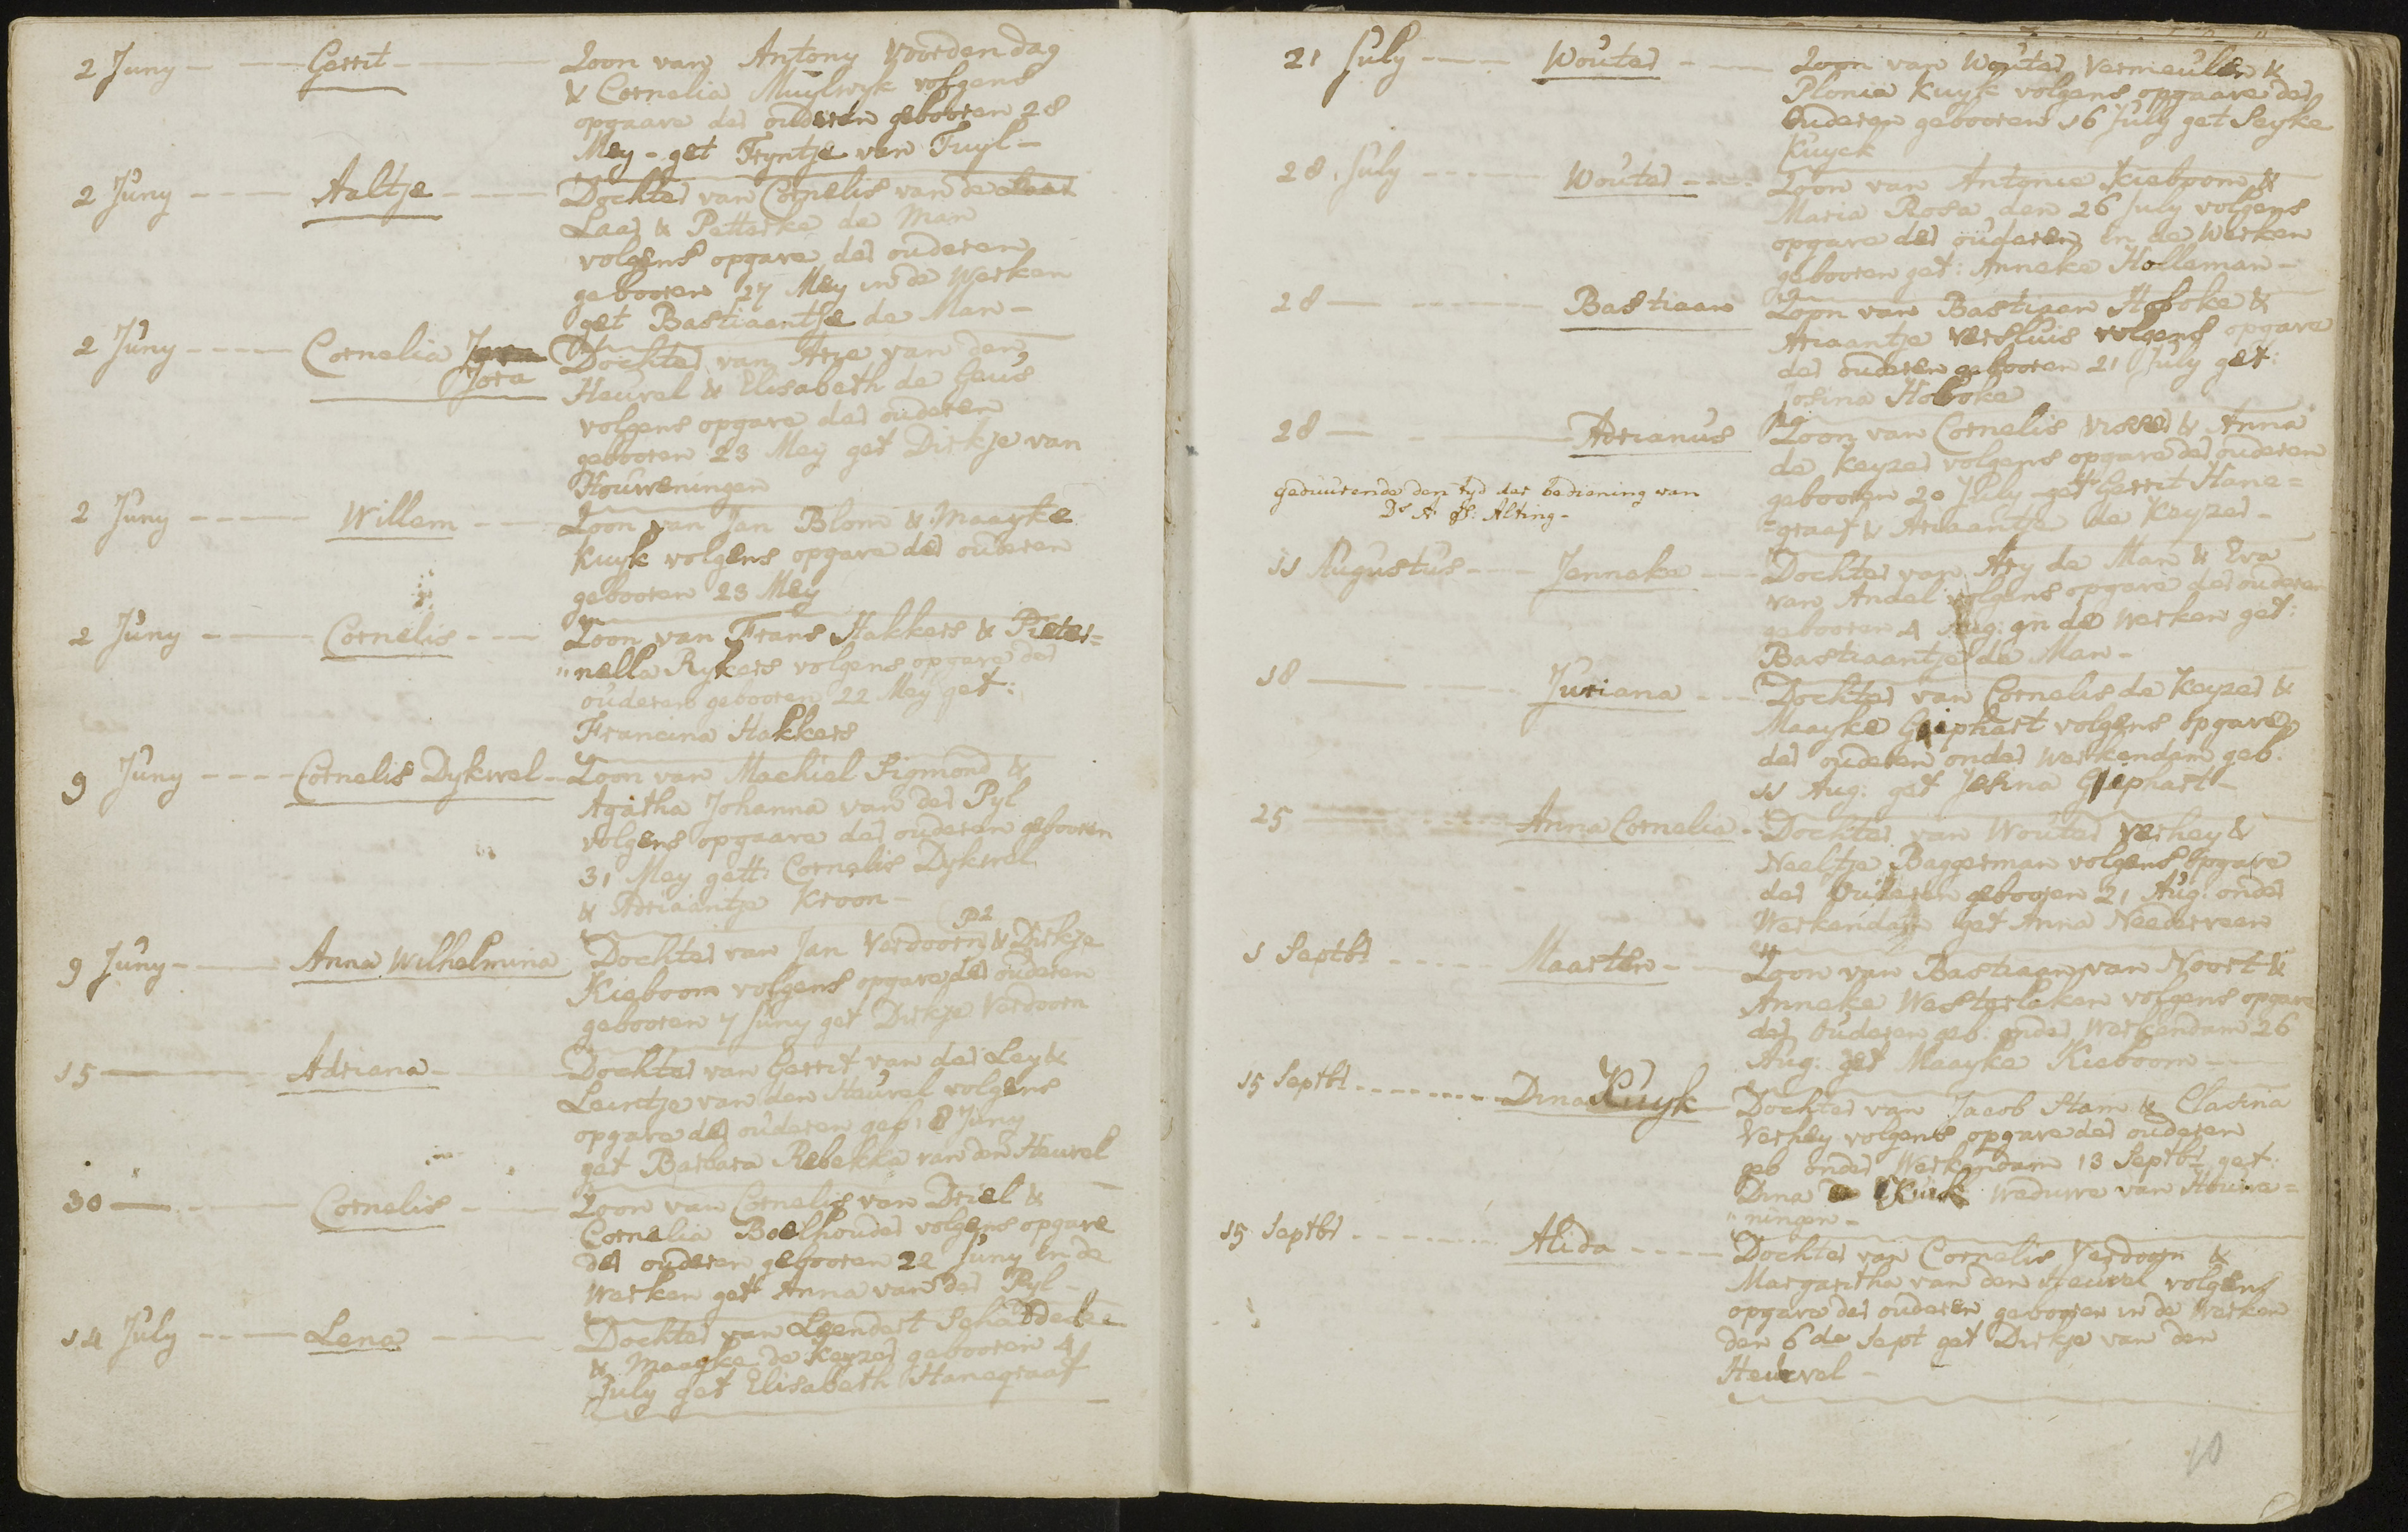 2 Juny - - Gerrit - Zoon van Antony Voordendag
& Cornelia Muylwyk volgens
opgaave der ouderen gebooren 28
Mey - get Fryntje van Tuyl -
2 Juny - - - Aaltje - - Dochter van Cornelis van de
Laar & Petterke de Man
volgens opgave der ouderen
gebooren 27 Mey in de Werken
get Bastiaantje de Man -
2 Juny - - - Cornelia Dochter van Arie van den
Jora Heuvel & Elisabeth de Geus
volgens opgave der ouderen
gebooren 23 Mey get Dirkje van
Houweningen
2 Juny - - - - Willem - - Zoon van Jan Blom & Maayke
Kuyk volgens opgave der ouderen
gebooren 23 Mey
2 Juny - - - - Cornelis - - - Zoon van Frans Hakkers & Pieter=
"nella Rykers volgens opgave der
ouderen gebooren 22 Mey get:
Francina Hakkers
9 Juny - - - - Cornelis Dykwel - Zoon van Machiel Sigmond &
Agatha Johanna van der Pyl
volgens opgaave der ouderen gebooren
31 Mey gett: Cornelis Dykwel
& Adriaantje Kroon -
9 Juny - - - Anna Wilhelmina Dochter van Jan Verdoorn & Dirkje
Kieboom volgens opgave der ouderen
gebooren 7 Juny get Dirkje Verdoorn
15 - - - Adriana - Dochter van Gerrit van der Ley &
Leintje van den Heuvel volgens
opgave der ouderen geb: 8 Juny
get Barbara Rebekka van den Heuvel
30 - - - Cornelis - - Zoon van Cornelis van Driel &
Cornelia Boelhouder volgens opgave
der ouderen gebooren 22 Juny in de
Werken get Anna van der Pyl -
14 July - - - Lena - - Dochter van Leendert
& Maayke de Keyzer gebooren 4
July get Elisabeth Hanegraaf
21 July - - - Wouter - - Zoon van Wouter Vermeulen &
Plonia Kuyk volgens opgaave der
Ouderen gebooren 16 July get Seyke
Kuyck
28 July - - - - Wouter - - - Zoon van Antonie Kieboom &
Maria Rosa den 26 July volgens
opgave der ouderen in de Werken
gebooren get: Anneke Holleman -
28 - - - - Bastiaan Zoon van Bastiaan Hoboke &
Ariaantje Versluis volgens opgave
der ouderen gebooren 21 July get:
Josina Hoboke
28 - - - Adrianus Zoon van Cornelis Visser & Anna
de Keyzer volgens opgave der ouderen
gebooren 20 July get Gerrit Hane=
"graaf & Ariaantje de Keyzer -
geduurende den tyd der bediening van
Ds A: Alting -
11 Augustus - - - Janneke - - Dochter van Ary de Man & Eva
van Andel volgens opgave der ouderen
gebooren 4 Aug: in de Werken get:
Bastiaantje de Man -
18 - - - Juriana - - Dochter van Cornelis de Keyzer &
Maayke Giephart volgens opgave
der ouderen onder Werkendam geb:
11 Aug: get Jesina Giephart -
25 - - - Anna Cornelia - Dochter van Wouter Verhey &
Neeltje Baggerman volgens opgave
der Ouderen gebooren 21 Aug: onder
Werkendam get Anna Neederveen
1 Septbr - - - - Maarten - Zoon van Bastiaan van Noort &
Anneke Westerleken volgens opgave
der Ouderen geb: onder Werkendam 26
Aug: get Maayke Kieboom -
15 Septbr - - - - - Dina Kuyk Dochter van Jacob Ham & Clasina
Verhey volgens opgave der ouderen
geb onder Werkendam 13 Septbr get
Dina Kuik weduwe van Houwe=
"ningen -
15 Septbr - - - - - Alida - - - Dochter van Cornelis Verdoorn &
Margaritha van den Heuvel volgens
opgave der ouderen gebooren in de Werken
den 6 de Sept get Dirkje van den
Heuvel -
10